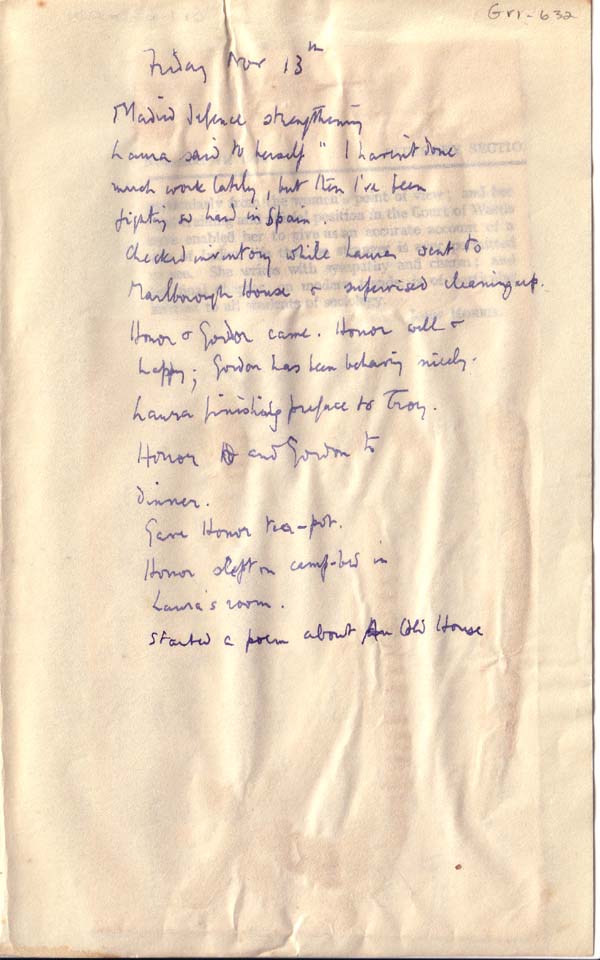 Gr1-632
Friday Nov 13th
Madrid defence strengthening
Laura said to herself "I haven't done
much work lately, but then I've been
fighting so hard in Spain.
Checked inventory while Laura went to
Marlborough House & supervised cleaning up.
Honor & Gordon came. Honor well &
happy; Gordon has been behaving nicely.
Laura finishing preface to Troy.
Honor and Gordon to
dinner.
Gave Honor tea-pot.
Honor slept on camp-bed in
Laura's room.
Started a poem about An Old House